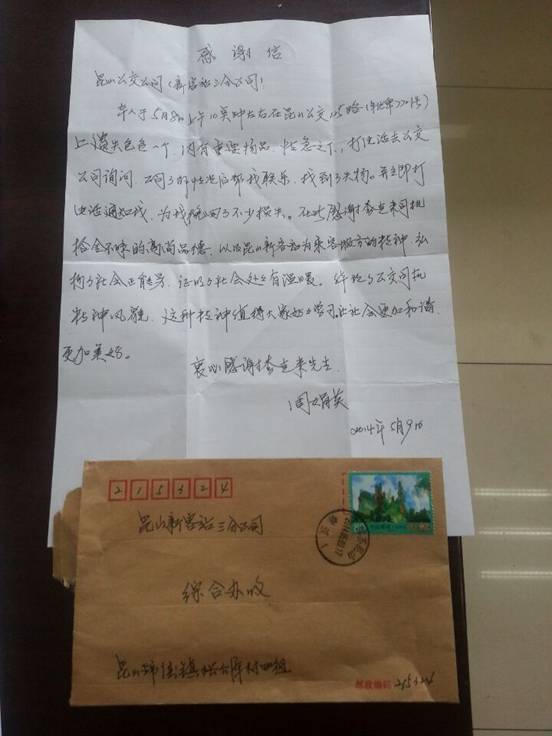 感谢信
昆山公交公司(新客站三分公司)
本人于5月8日上午10点钟左右在昆山公交125路
上遗失包包一个,内有重要物品,情急之下,打电话去公交
公司询问,公司了解情况后帮我联系,找到了失物。并立即打
电话通知我,为我挽回了不少损失。在此感谢李连来司机
拾金不昧的高尚品德,以及昆山新客站为乘客服务的精神,弘
扬了社会正能量,证明了社会处处有温暖。体现了公交司机
精神风貌,这种精神值得大家好好学习,让社会更加和谐,
更加美好。
衷心感谢李连来先生
周娟英
2014年5月9日
215324
昆山新客站三分公司
综合办收
昆山市 镇 村四组
邮政编码 215324